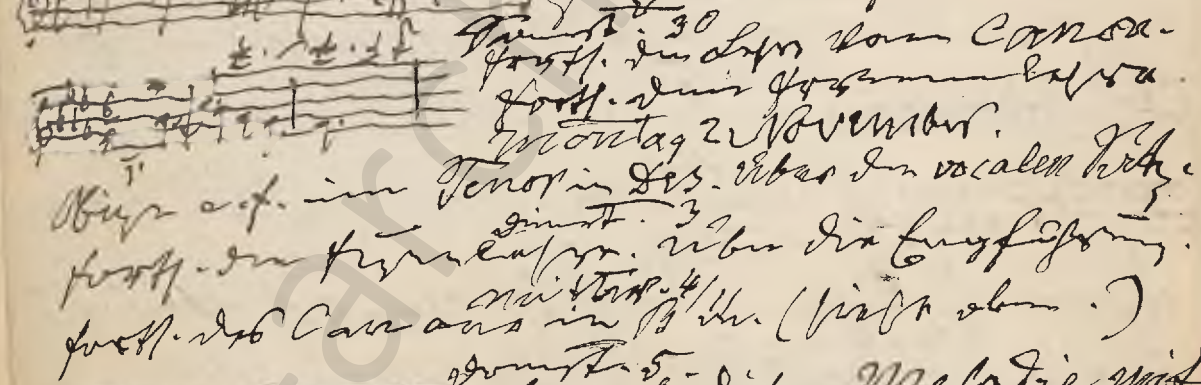 30
forts. der Lehre vom Canon.
forts. der Formenlehre
Montag 2 November.
Obiger c.f. im Tenor in Des. Über den vocalen Satz.
Dienst. 3
forts. der Fugenlehre. Über die Engführung.
Mittw. 4
forts. des Canons in (siehe oben.)
Donnst. 5.
Melodie mit